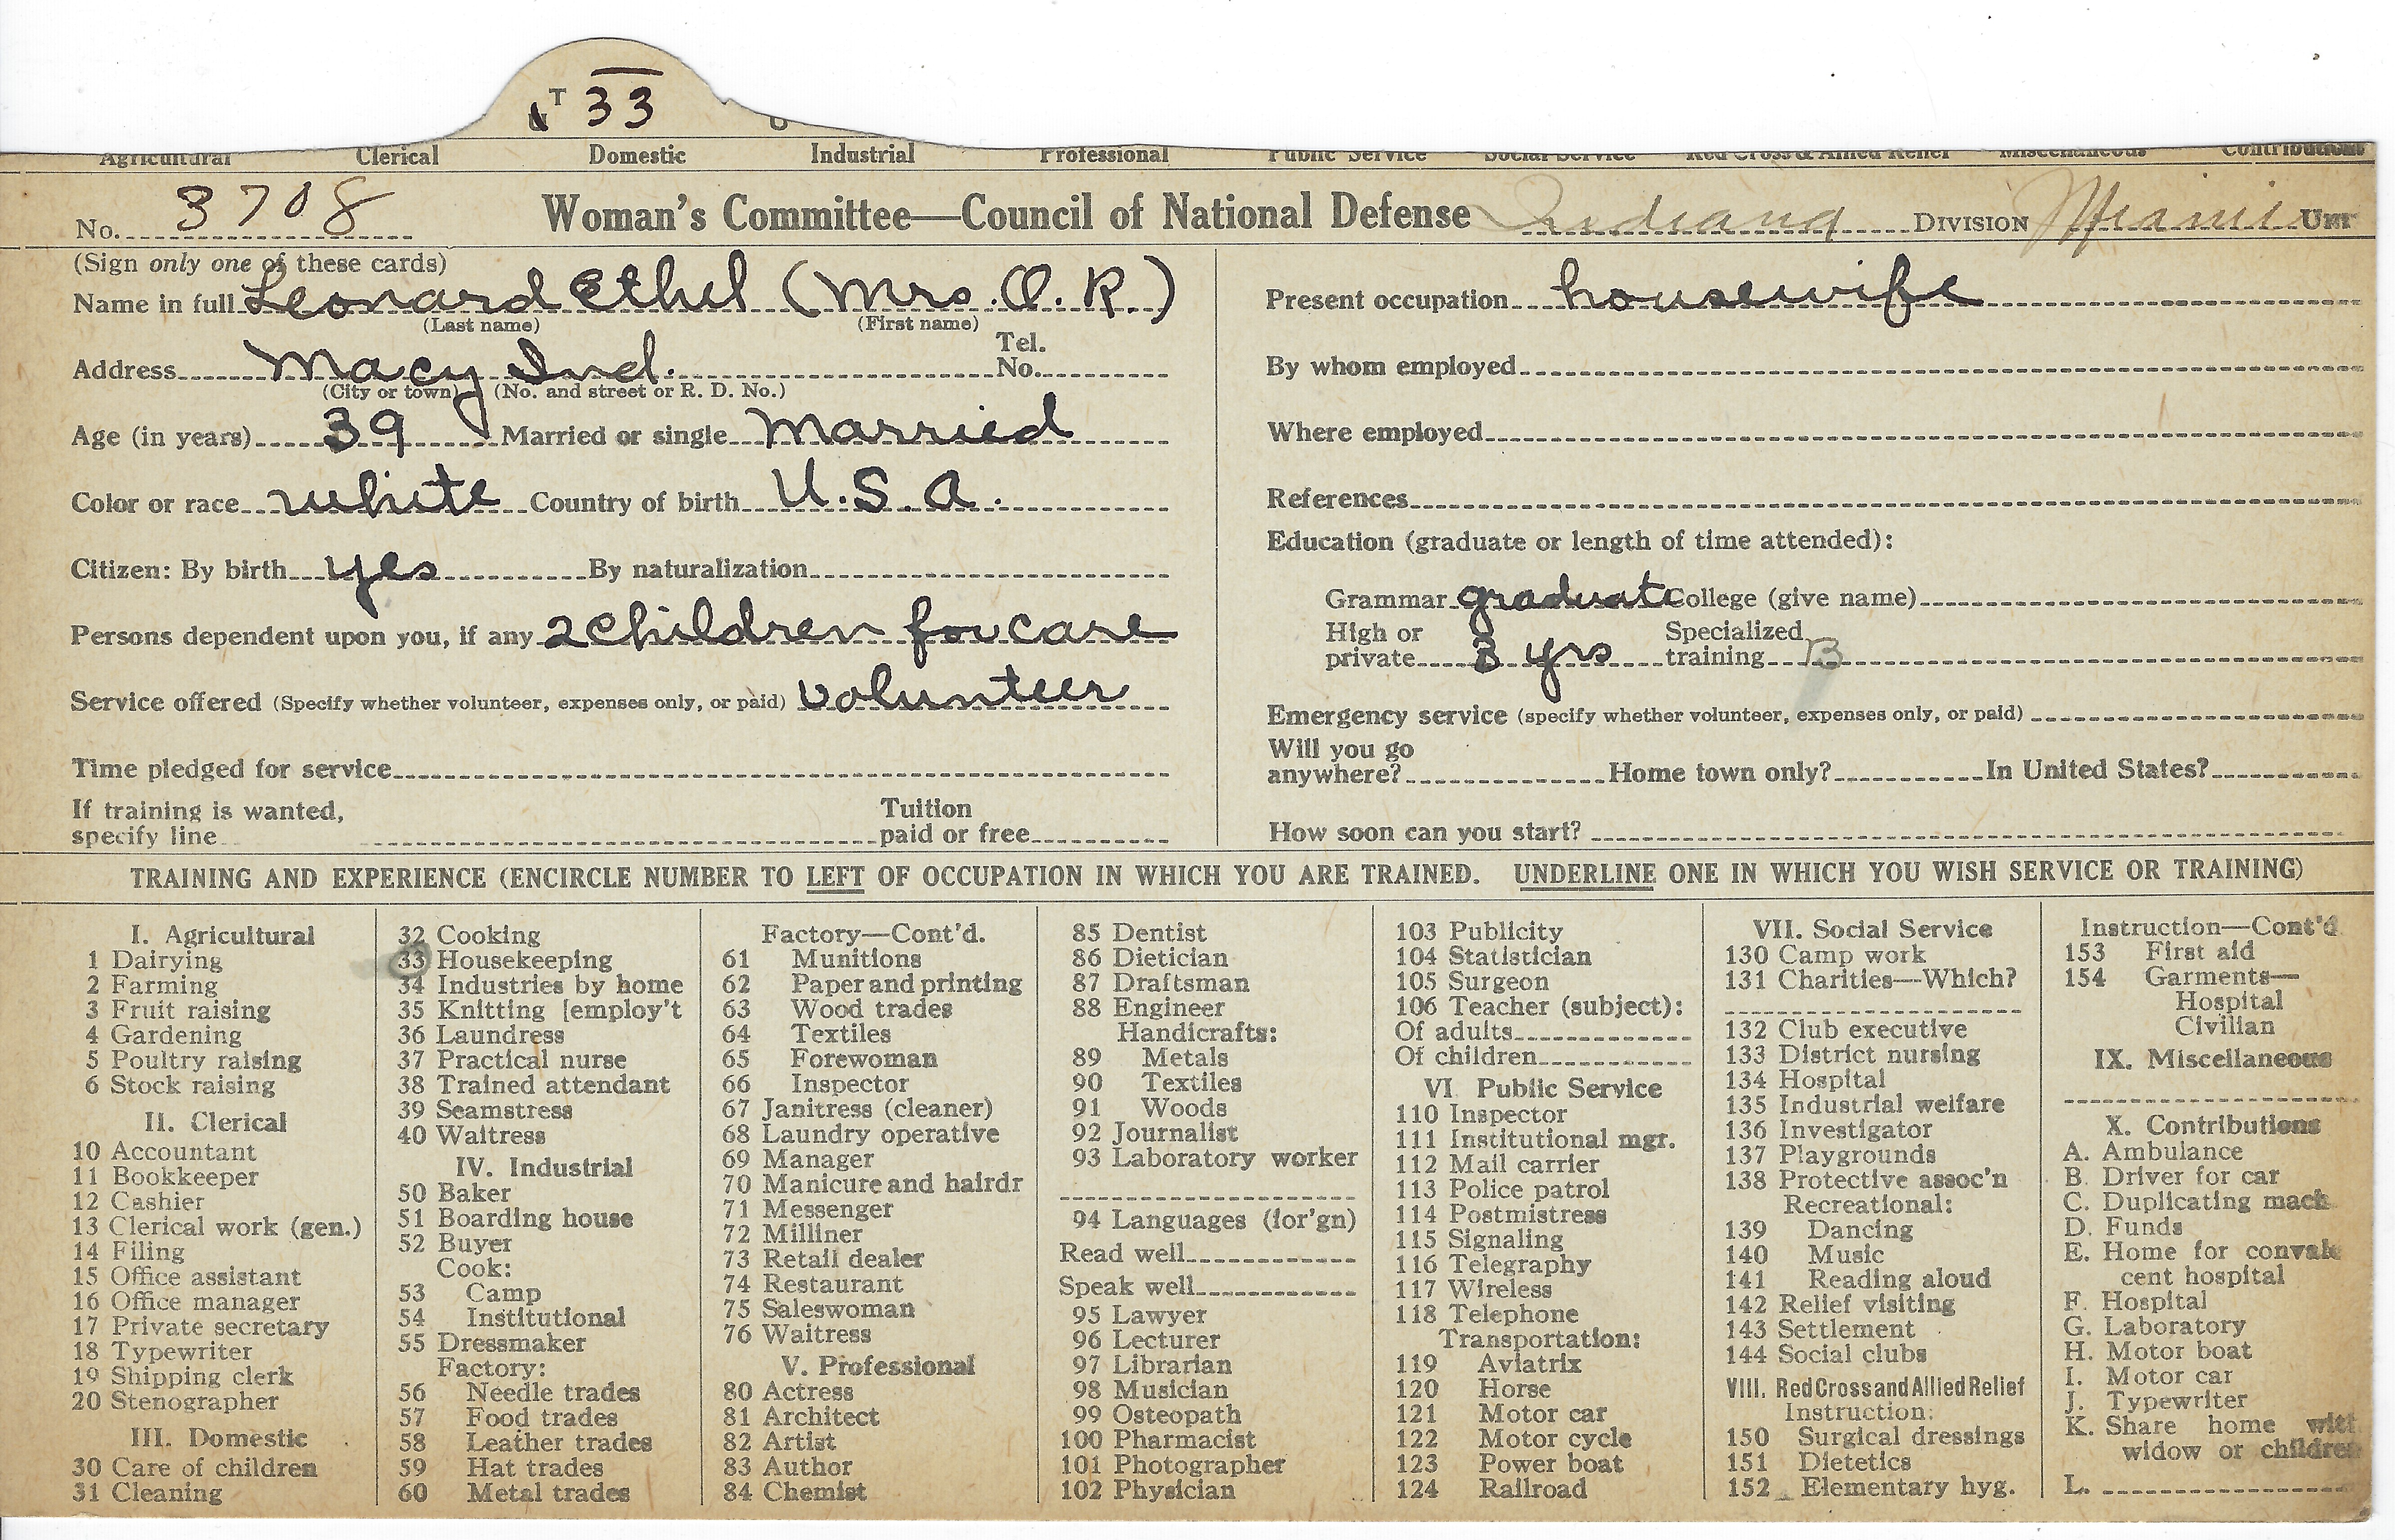 T 33
Agricultural Clerical Domestic Industrial Professional Public Service Social Service Red Cross & Allied Relief Miscellaneous Contributions
No. 3708 Woman's Committee—Council of National Defense Indiana DIVISION Miami UNIT
(Sign only one of these cards)
Name in full Leonard Ethel (Mrs. O. R.)
(Last name) (First name)
Address Macy Ind. Tel. No.
(City or town) (No. and street or R. D. No.)
Age (in years) 39 Married or single married
Color or race white Country of birth U.S.A.
Citizen: By birth yes By naturalization
Persons dependent upon you, if any 2 children for care
Service offered (Specify whether volunteer, expenses only, or paid) volunteer
Time pledged for service
If training is wanted, specify line Tuition paid or free
Present occupation housewife
By whom employed
Where employed
References
Education (graduate or length of time attended):
Grammar graduate College (give name)
High or private 3 yrs Specialized training B
Emergency service (specify whether volunteer, expenses only, or paid)
Will you go anywhere? Home town only? In United States?
How soon can you start?
TRAINING AND EXPERIENCE (ENCIRCLE NUMBER TO LEFT OF OCCUPATION IN WHICH YOU ARE TRAINED. UNDERLINE ONE IN WHICH YOU WISH SERVICE OR TRAINING)
I. Agricultural
1 Dairying
2 Farming
3 Fruit raising
4 Gardening
5 Poultry raising
6 Stock raising
II. Clerical
10 Accountant
11 Bookkeeper
12 Cashier
13 Clerical work (gen.)
14 Filing
15 Office assistant
16 Office manager
17 Private secretary
18 Typewriter
19 Shipping clerk
20 Stenographer
III. Domestic
30 Care of children
31 Cleaning
32 Cooking
33 Housekeeping
34 Industries by home
35 Knitting [employ't
36 Laundress
37 Practical nurse
38 Trained attendant
39 Seamstress
40 Waitress
IV. Industrial
50 Baker
51 Boarding house
52 Buyer
Cook:
53 Camp
54 Institutional
55 Dressmaker
Factory:
56 Needle trades
57 Food trades
58 Leather trades
59 Hat trades
60 Metal trades
Factory—Cont'd.
61 Munitions
62 Paper and printing
63 Wood trades
64 Textiles
65 Forewoman
66 Inspector
67 Janitress (cleaner)
68 Laundry operative
69 Manager
70 Manicure and hairdr
71 Messenger
72 Milliner
73 Retail dealer
74 Restaurant
75 Saleswoman
76 Waitress
V. Professional
80 Actress
81 Architect
82 Artist
83 Author
84 Chemist
85 Dentist
86 Dietician
87 Draftsman
88 Engineer
Handicrafts:
89 Metals
90 Textiles
91 Woods
92 Journalist
93 Laboratory worker
94 Languages (for'gn)
Read well
Speak well
95 Lawyer
96 Lecturer
97 Librarian
98 Musician
99 Osteopath
100 Pharmacist
101 Photographer
102 Physician
103 Publicity
104 Statistician
105 Surgeon
106 Teacher (subject):
Of adults
Of children
VI. Public Service
110 Inspector
111 Institutional mgr.
112 Mail carrier
113 Police patrol
114 Postmistress
115 Signaling
116 Telegraphy
117 Wireless
118 Telephone
Transportation:
119 Aviatrix
120 Horse
121 Motor car
122 Motor cycle
123 Power boat
124 Railroad
VII. Social Service
130 Camp work
131 Charities—Which?
132 Club executive
133 District nursing
134 Hospital
135 Industrial welfare
136 Investigator
137 Playgrounds
138 Protective assoc'n
Recreational:
139 Dancing
140 Music
141 Reading aloud
142 Relief visiting
143 Settlement
144 Social clubs
VIII. Red Cross and Allied Relief
Instruction:
150 Surgical dressings
151 Dietetics
152 Elementary hyg.
Instruction—Cont'd
153 First aid
154 Garments—
Hospital
Civilian
IX. Miscellaneous
X. Contributions
A. Ambulance
B. Driver for car
C. Duplicating mach
D. Funds
E. Home for convale
cent hospital
F. Hospital
G. Laboratory
H. Motor boat
I. Motor car
J. Typewriter
K. Share home with
widow or children
L.